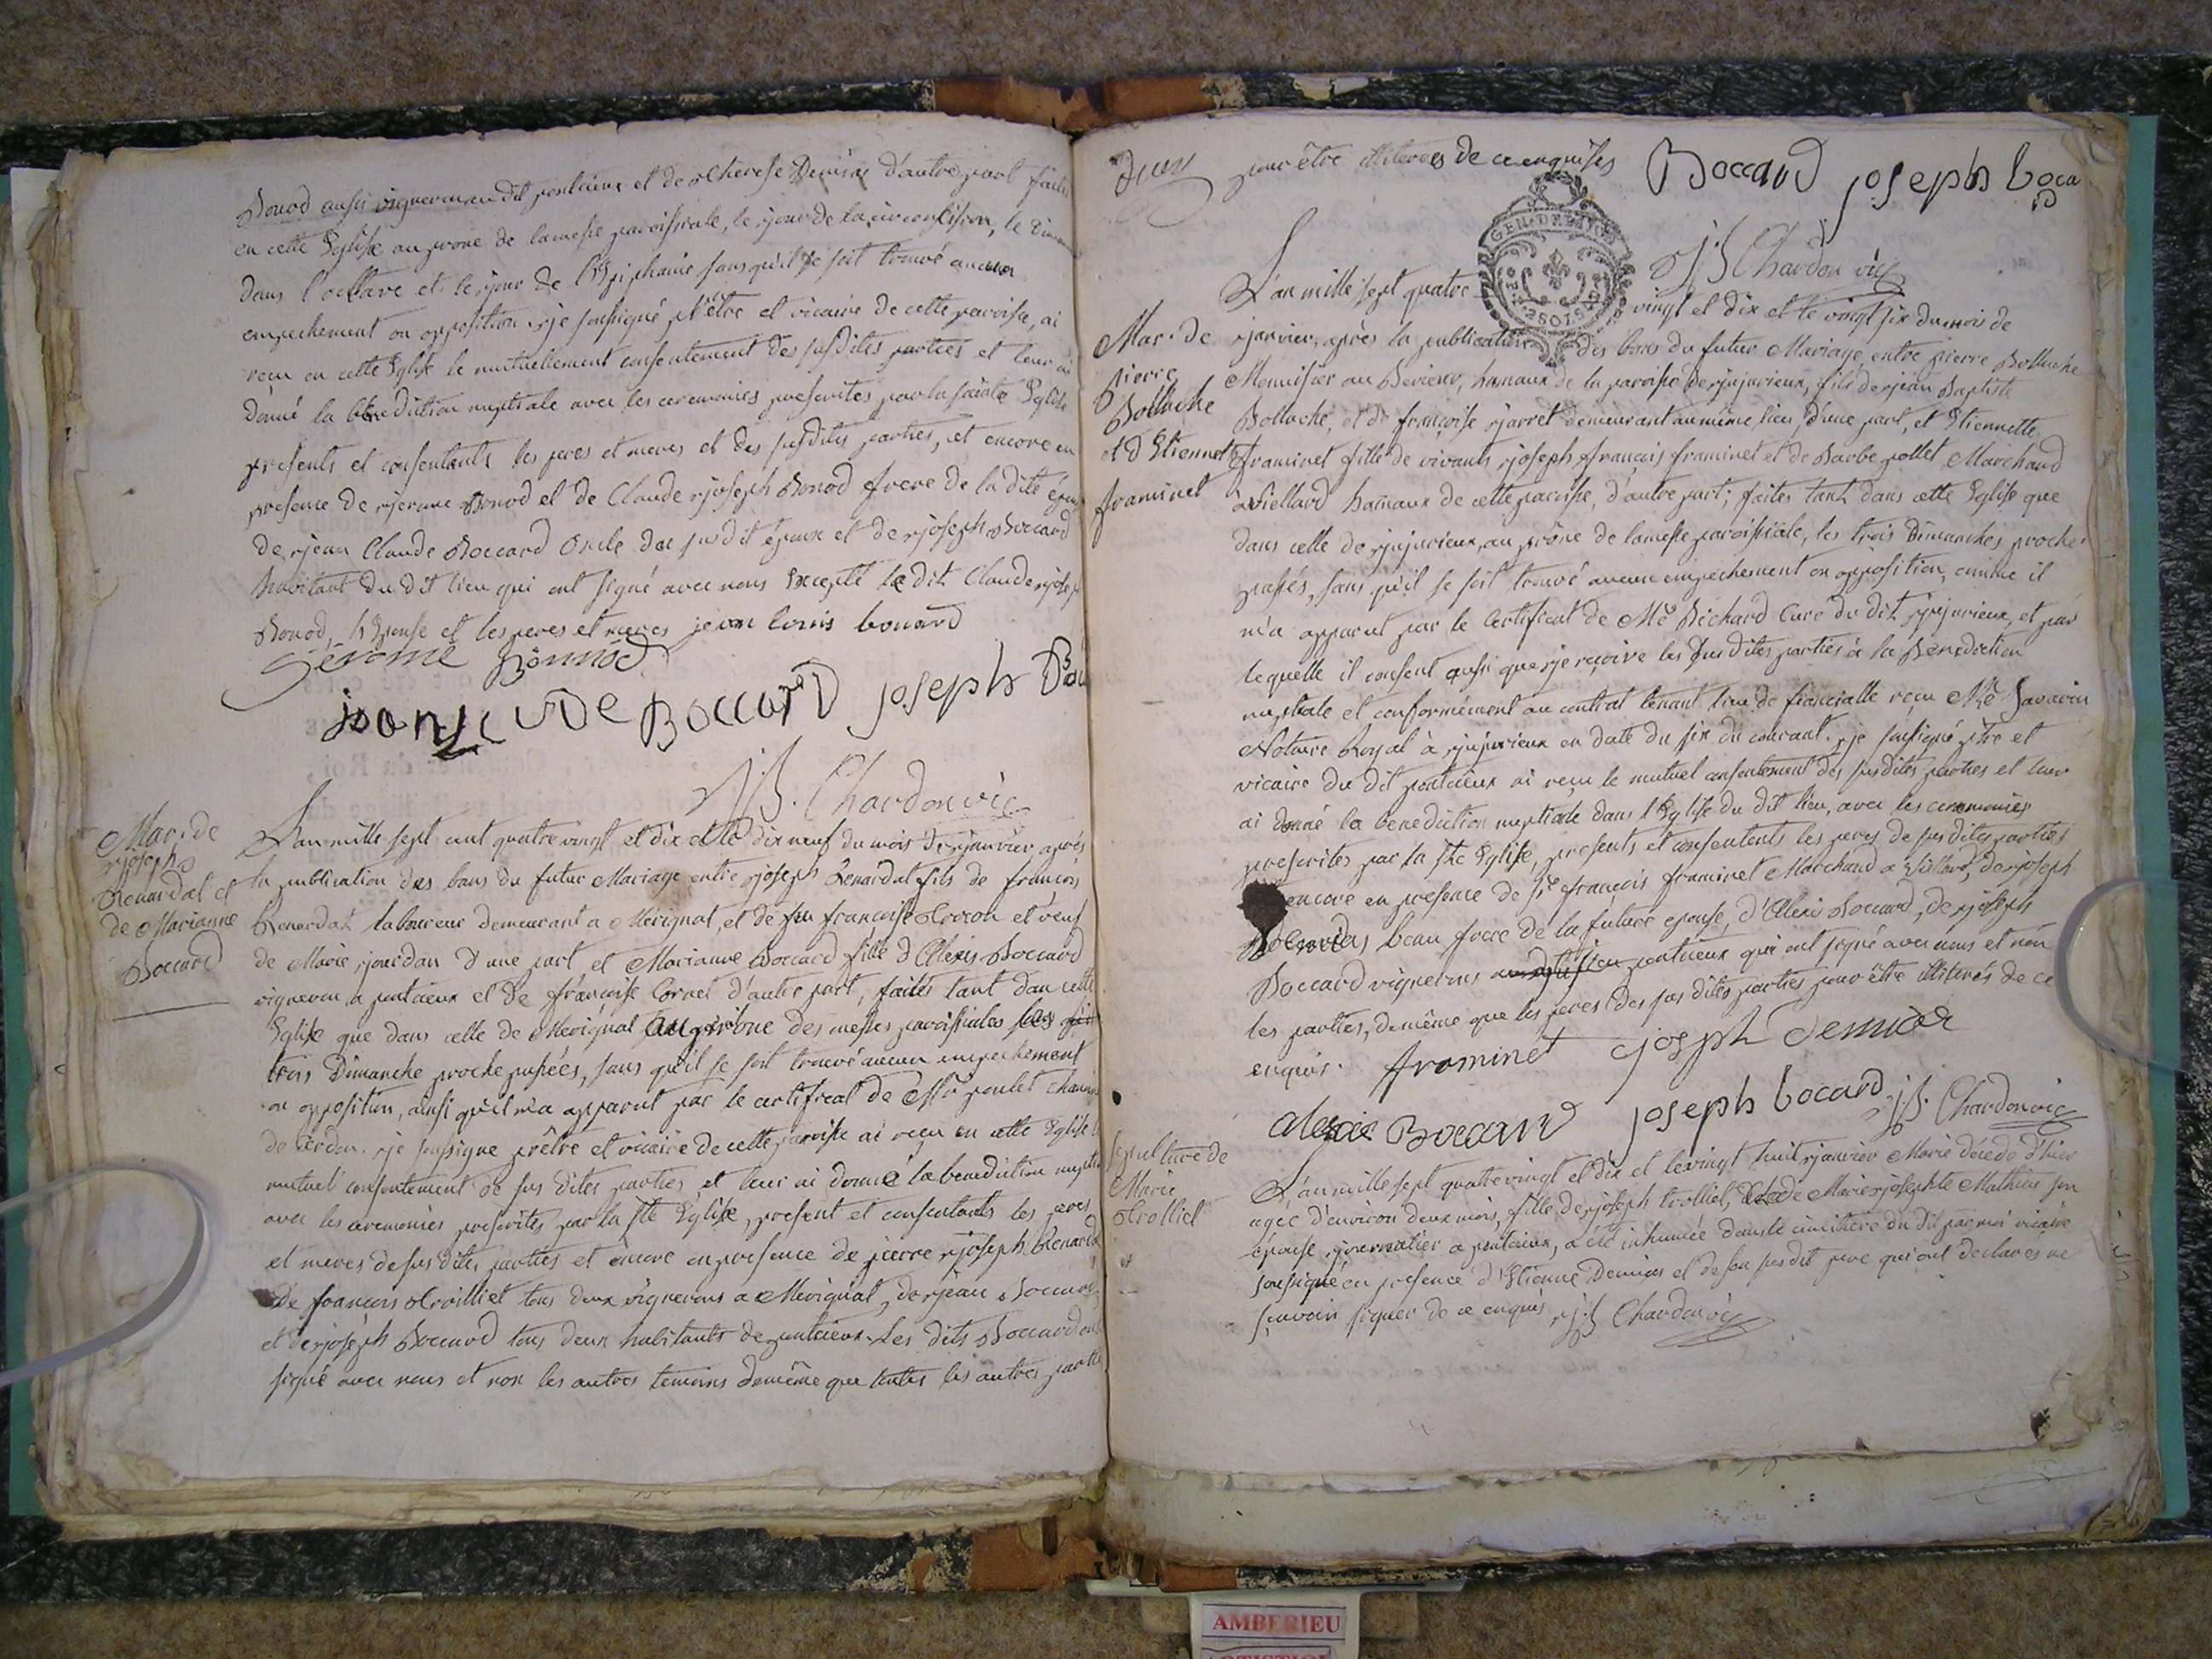 Bonod aussi vigneron au dit pontcieux et de Therese Demias d'autre part faites
en cette Eglise au prone de la messe paroissiale, le jour de la circoncision, le Dimanche
dans l'octave et le jour de l'Epiphanie sans qu'il se soit trouvé aucun
empechement ou opposition, je soussigné prêtre et vicaire de cette paroisse, ai
reçu en cette Eglise le mutuellement consentement des susdites parties et leur ai
donné la benediction nuptiale avec les ceremonies prescrites par la sainte Eglise
presents et consentants les peres et meres et des susdites parties, et encore en
presence de jerome Bonod et de Claude joseph Bonod frere de la dite épouse
de jean Claude Boccard Oncle du susdit époux et de joseph Boccard
habitant du dit lieu qui ont signé avec nous Excepté le dit Claude joseph
Bonod, l'Epouse et les peres et meres jean louis bouard
Gérome Bonnod
joanscude Boccard joseph Bou
J.B. Chardon vic
Mar. de
joseph
Renardat et
de Marianne
Boccard
L'an mille sept cent quatre vingt et dix et le dix neuf du mois de janvier après
la publication des bans du futur Mariage entre joseph Renardat fils de françois
Renardat laboureur demeurant a Merignat, et de feu françoise Orvon et veuf
de Marie jourdan d'une part et Marianne Boccard fille d'Alexis Boccard
vigneron a pontcieux et de françoise Cornet d'autre part, faites tant dan cette
Eglise que dans celle de Merignat au prône des messes paroissiales les
trois Dimanche proche passées, sans qu'il se soit trouvé aucun empechement
ou opposition, ainsi qu'il m'a apparut par le certificat de Mr poulet
de Cerdon. je soussigne prêtre et vicaire de cette paroisse ai reçu en cette Eglise le
mutuel consentement de sus dites parties et leur ai donné la benediction nuptiale
avec les ceremonies prescrites par la Ste Eglise, present et consentants les peres
et meres de sus dites parties et encore en presence de pierre joseph Renardat
de françois Trolliet tous deux vignerons a Merignat, de jean Boccard
et de joseph Boccard tous deux habitants de pontcieux. Les dits Boccard ont
signé avec nous et non les autres temoins de même que toutes les autres parties
pour être illiteres de ce enquises Boccard joseph boca
J.B Chardon vic
GEN. DE DIJON
Mar. de
pierre
Bolliache
et d'Etiennette
framinet
L'an mille sept quatre vingt et dix et le vingt six du mois de
janvier, après la publication des bans du futur Mariage entre pierre Bolliache
Menuisier au Borieux, hamaux de la paroisse de jujurieux, fils de jean Baptiste
Bolliache, et de françoise jarret demeurant au même lieu d'une part, et Etiennette
framinet fille de vivants joseph françois framinet et de Barbe pollet Marchand
à Viellard hamaux de cette paroisse, d'autre part; faites tant dans cette Eglise que
dans celle de jujurieux, au prône de la messe paroissiale, les trois Dimanches proche
passés, sans qu'il se soit trouvé aucun empechement ou opposition, comme il
m'a apparut par le Certificat de Me Bichard Curé du dit jujurieux, et par
lequelle il consent aussi que je reçoive les susdites parties à la Benediction
nuptiale et conformément au contrat tenant lieu de fiancialle reçu Me Savarin
Notaire Royal à jujurieux en date du six du courant. je soussigné ptre et
vicaire du dit pontcieux ai reçu le mutuel consentement des susdites parties et leur
ai donné la benediction nuptiale dans l'Eglise du dit lieu, avec les ceremonies
prescrites par la Ste Eglise, presents et consentents les peres de sus dites parties
encore en presence de Sr françois framinet Marchand a Viellard, de joseph
beau frere de la future epouse, d'Alexis Boccard, de joseph
Boccard vignerons pontcieux qui ont signé avec nous et non
les parties, de même que les peres des sus dites parties pour être illiterés de ce
enquis. framinet joseph demias
alexis Boccard joseph bocard J.B. Chardon vic
sepulture de
Marie
Trolliet
L'an mille sept quatre vingt et dix et le vingt huit janvier Marie décedé d'hier
agée d'environ deux mois, fille de joseph trolliet, et de Marie josephte Mathieu son
épouse journalier a pontcieux, a été inhumée dans le cimitiere du dit par moi vicaire
soussigné en presence d'Etienne Demias et de son susdit pere qui ont declarés ne
sçavoir signer de ce enquis J.B Chardon vic
AMBERIEU